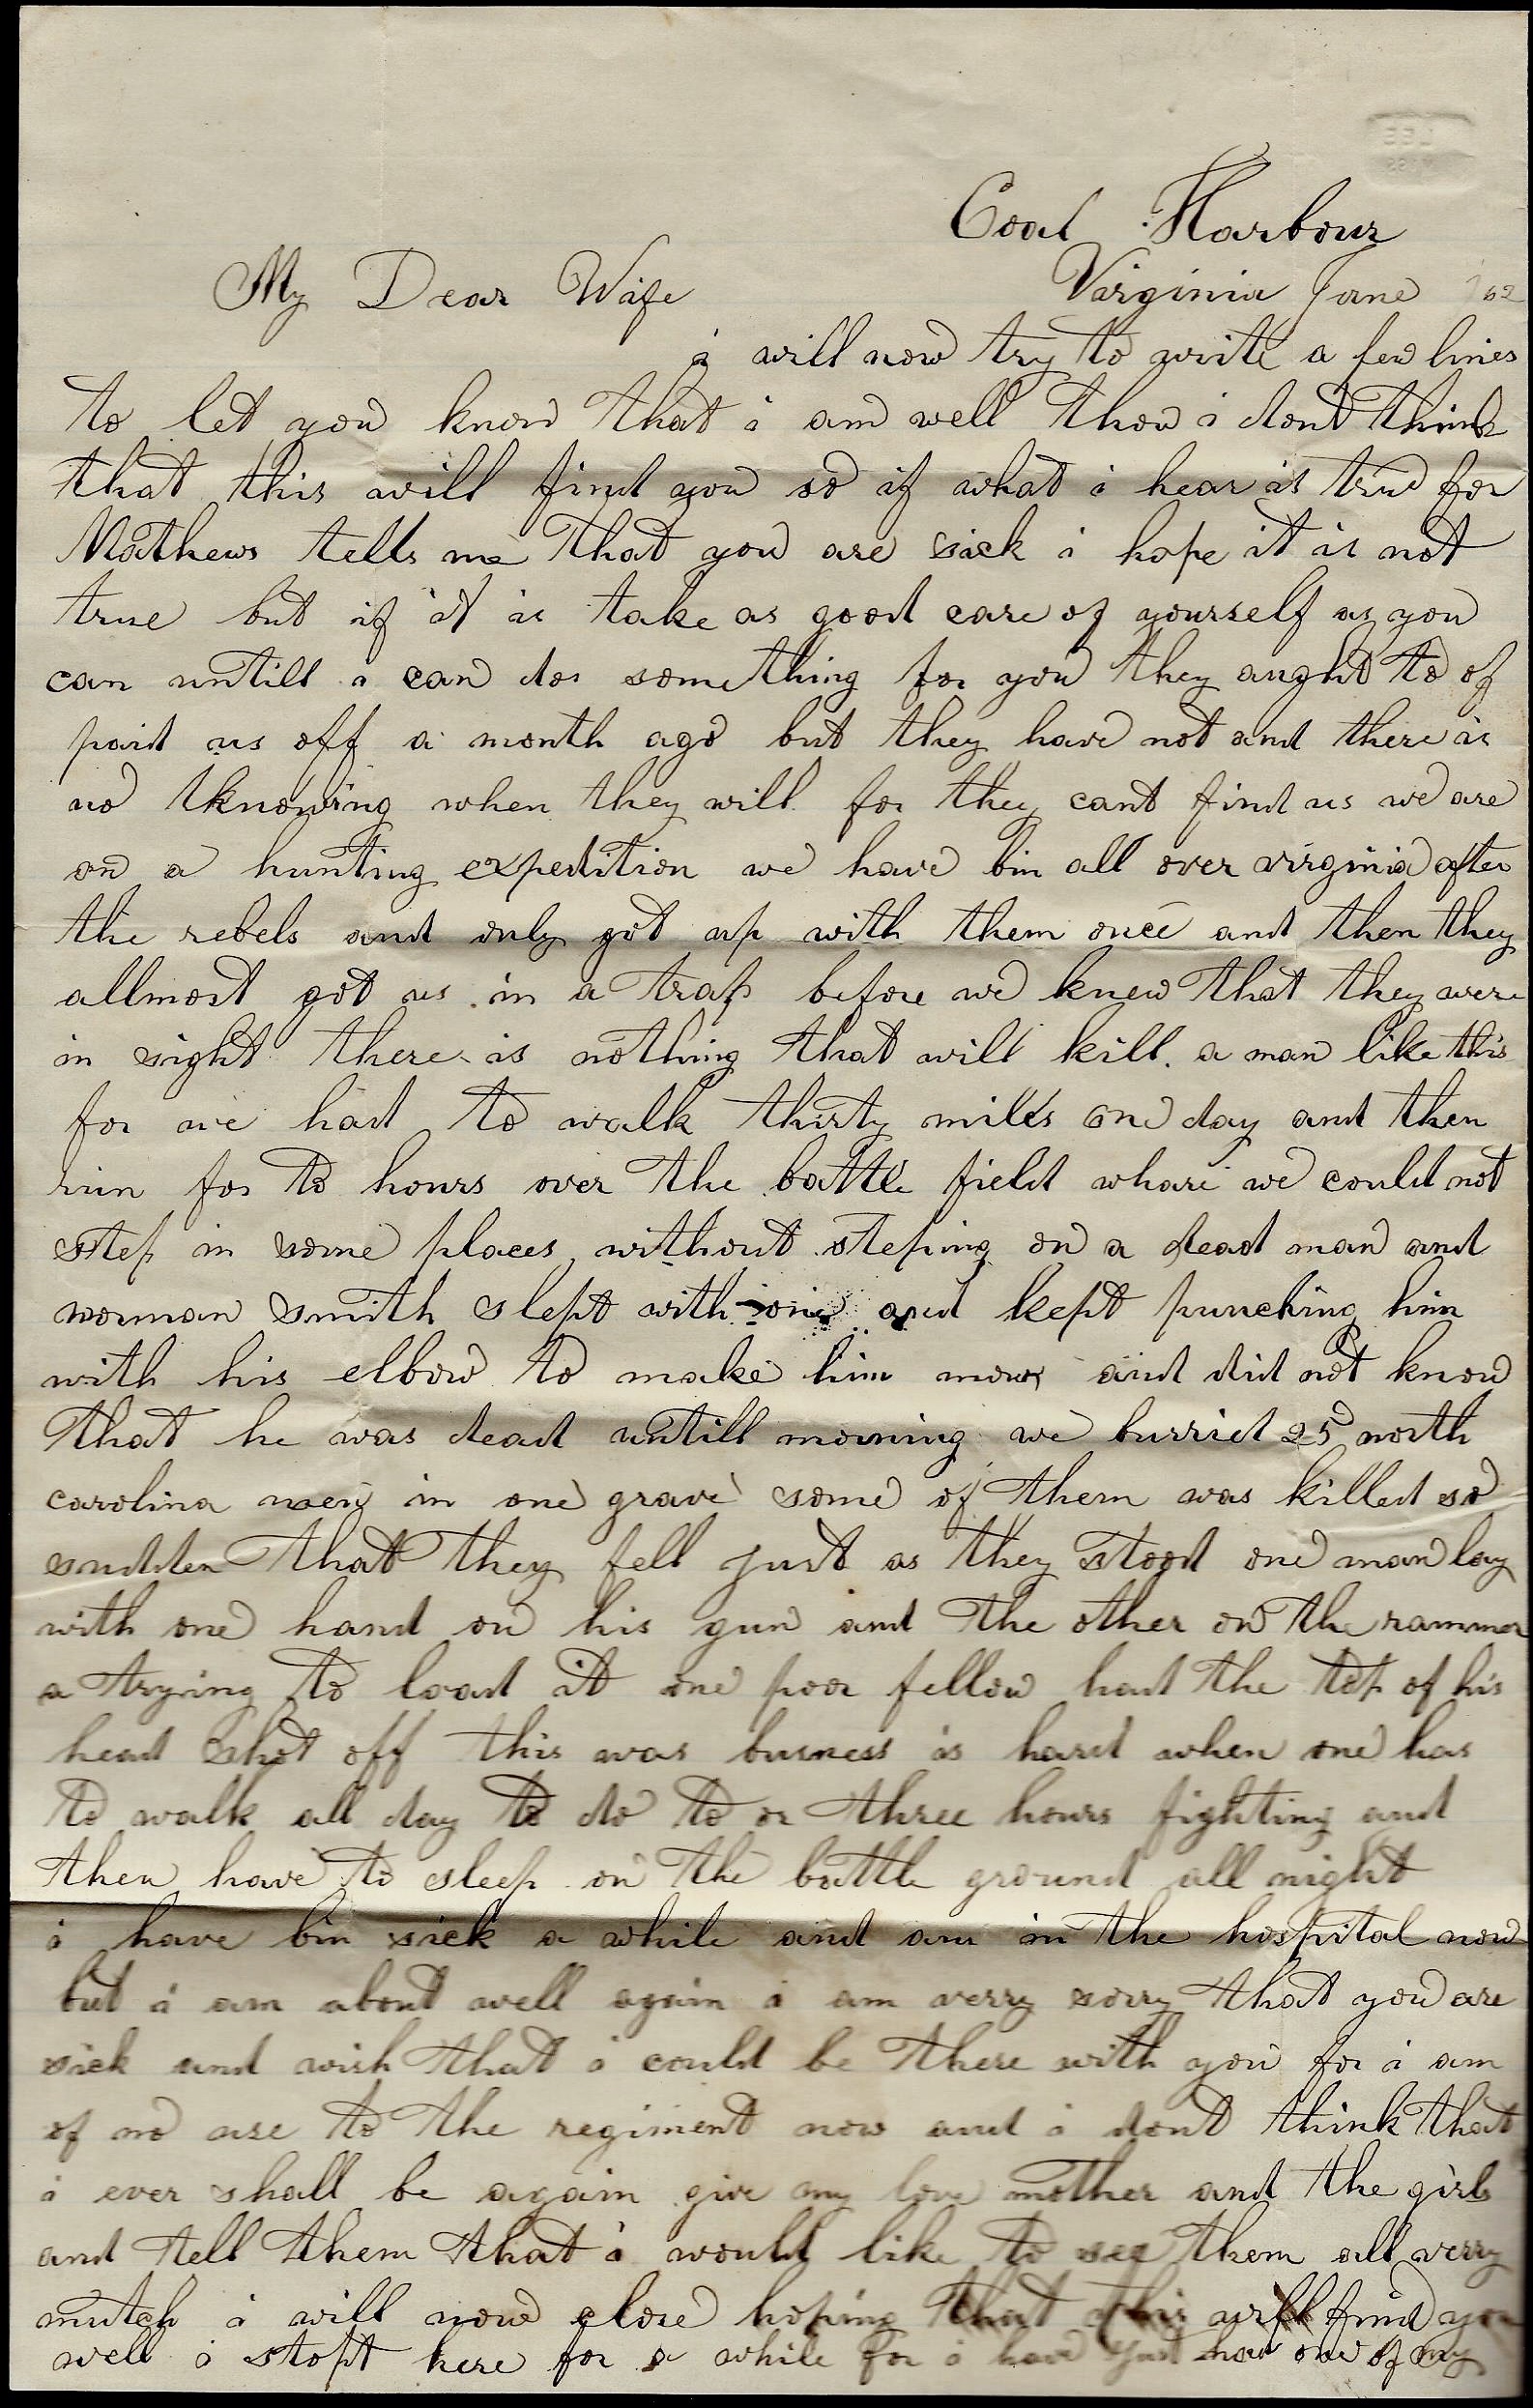 Coal Harbour
My Dear Wife Virginia June 62
i will now try to write a few lines
to let you know that i am well thow i dont think
that this will find you so if what i hear is true for
Mathews tells me that you are sick i hope it is not
true but if it is take as good care of yourself as you
can untill i can do something for you they aught to of
paid us off a month ago but they have not and there is
no knowing when they will for they cant find us we are
on a hunting expedition we have bin all over virginia after
the rebels and only got up with them once and then they
allmost got us in a trap before we knew that they were
in sight there is nothing that will kill a man like this
for we had to walk thirty miles one day and then
run for to hours over the battle field whare we could not
step in some places without steping on a dead man and
norman smith slept with one and kept punching him
with his elbow to make him move and did not know
that he was dead untill morning we burried 25 north
carolina men in one grave some of them was killed so
sudden that they fell just as they stood one man lay
with one hand on his gun and the other on the rammer
a trying to load it one poor fellow had the top of his
head shot off this war busness is hard when one has
to walk all day to do to or three hours fighting and
then have to sleep on the battle ground all night
i have bin sick a while and am in the hospital now
but i am about well again i am verry sorry that you are
sick and wish that i could be there with you for i am
of no use to the regiment now and i dont think that
i ever shall be again give my love mother and the girls
and tell them that i would like to see them all verry
mutch i will now close hoping that this will find you
well i stopt here for a while for i have just had one of my